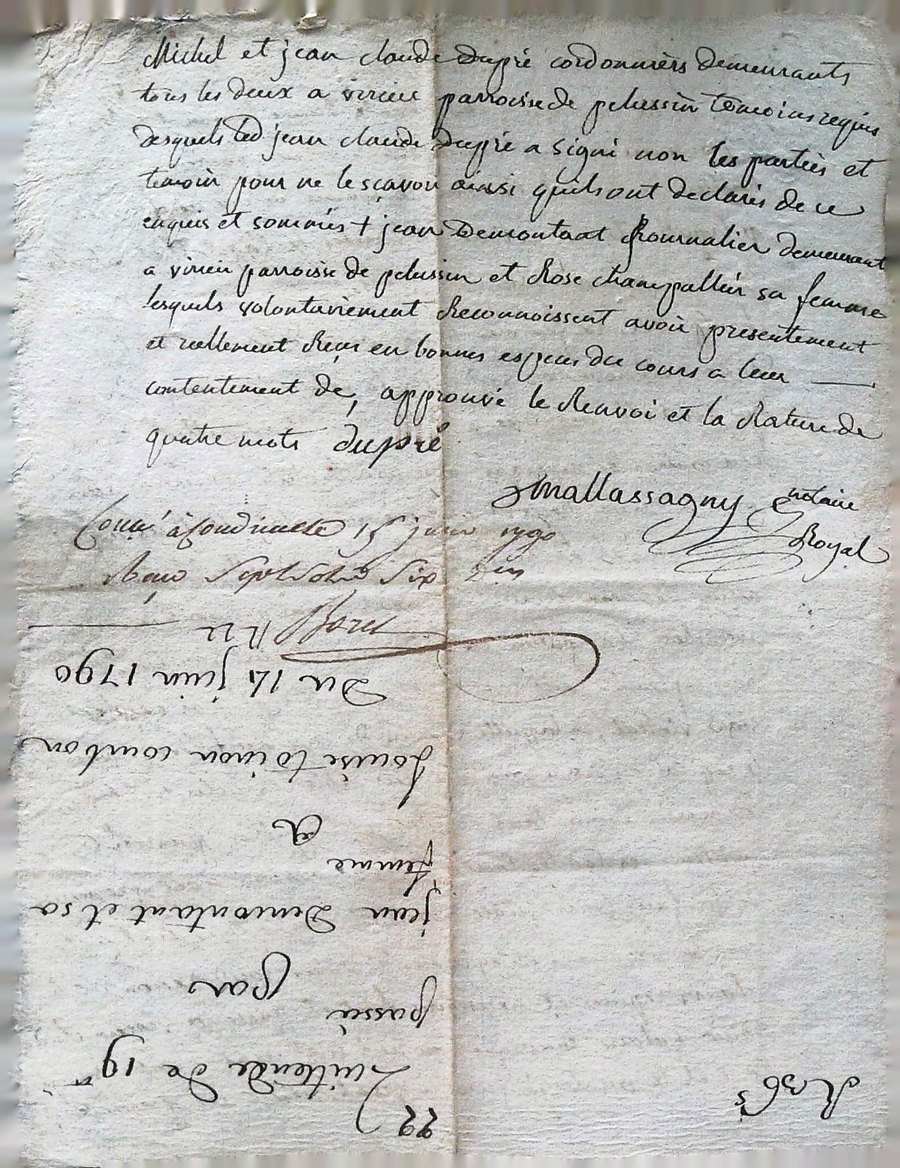 Michel et jean claude dupré cordonniers demeurants
tous les deux a virieu parroisse de pelussin temoins requis
desquels led jean claude dupré a signi non les parties et
temoin pour ne le sçavoir ainsi quils ont declarés de ce
enquis et sommés + jean Demontant Journalier demeurant
a virieu parroisse de pelussin et Rose champallier sa femme
lesquels volontairement Reconnoissent avoir presentement
et reellement Reçus en bonnes especes du cours a leur
contentement de, approuvé le Renvoi et la Rature de
quatre mots dupré
mallassagny notaire
Royal
à Condrieu le 15 juin 1790
Reçu Sept sols Six den
22
Quittence de 19#
passée
par
jean Demontant et sa
femme
a
Louise courbon
Du 14 juin 1790